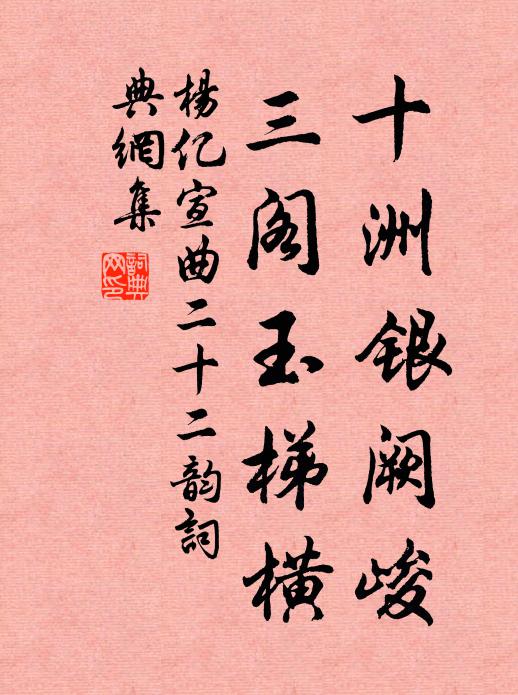 十洲银阙峻
三阁玉梯横
杨亿宣曲二十二韵词
典网集
词典
网印